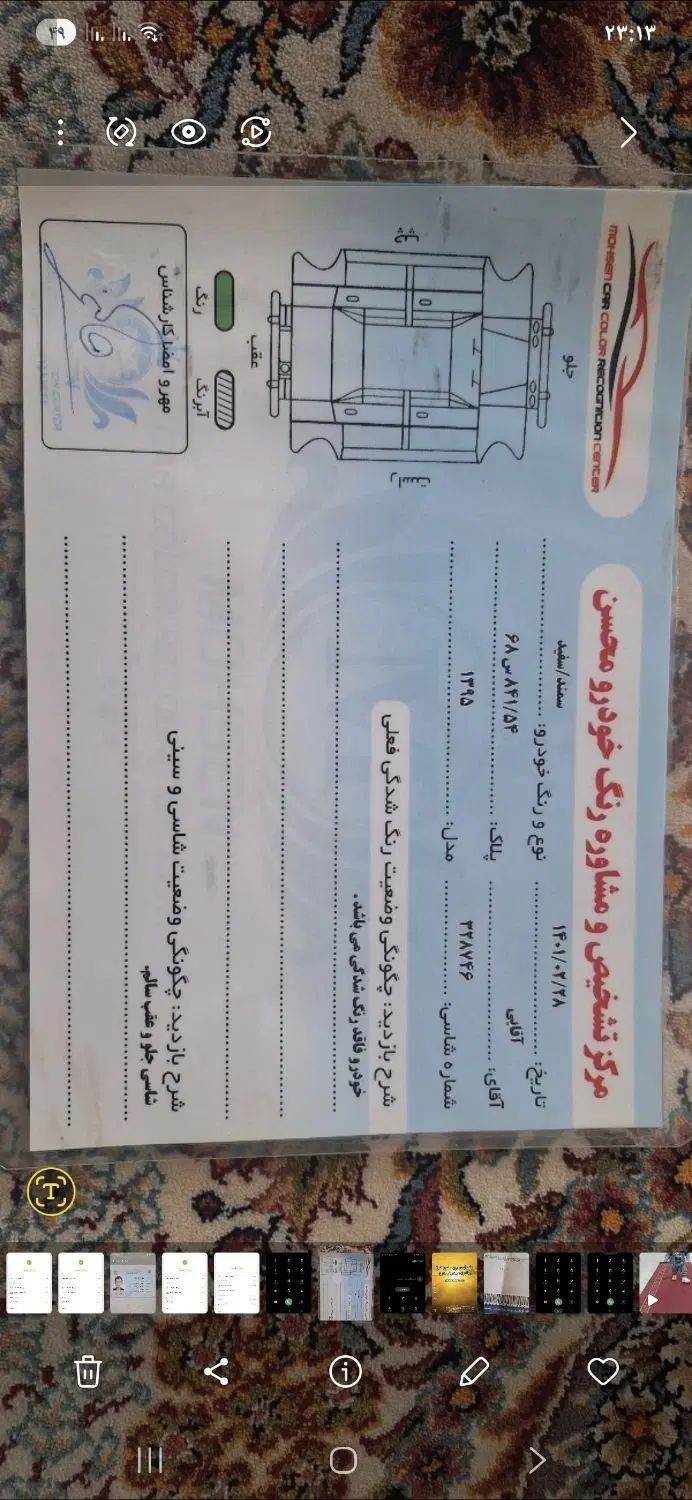 ۴۹
۲۳:۱۳
MOHSEN CAR COLOR RECOGNITION CENTER
مرکز تشخیص و مشاوره رنگ خودرو محسن
تاریخ: ۱۴۰۱/۰۲/۲۸ نوع و رنگ خودرو: سمند/سفید
آقای: آقایی پلاک: ۶۸ س ۸۴۱/۵۴
شماره شاسی: ۳۲۸۷۴۶ مدل: ۱۳۹۵
شرح بازدید: چگونگی وضعیت رنگ شدگی فعلی
خودرو فاقد رنگ شدگی می باشد.
شرح بازدید: چگونگی وضعیت شاسی و سینی
شاسی جلو و عقب سالم.
جلو
عقب
رنگ
آبرنگ
مهر و امضا کارشناس
T